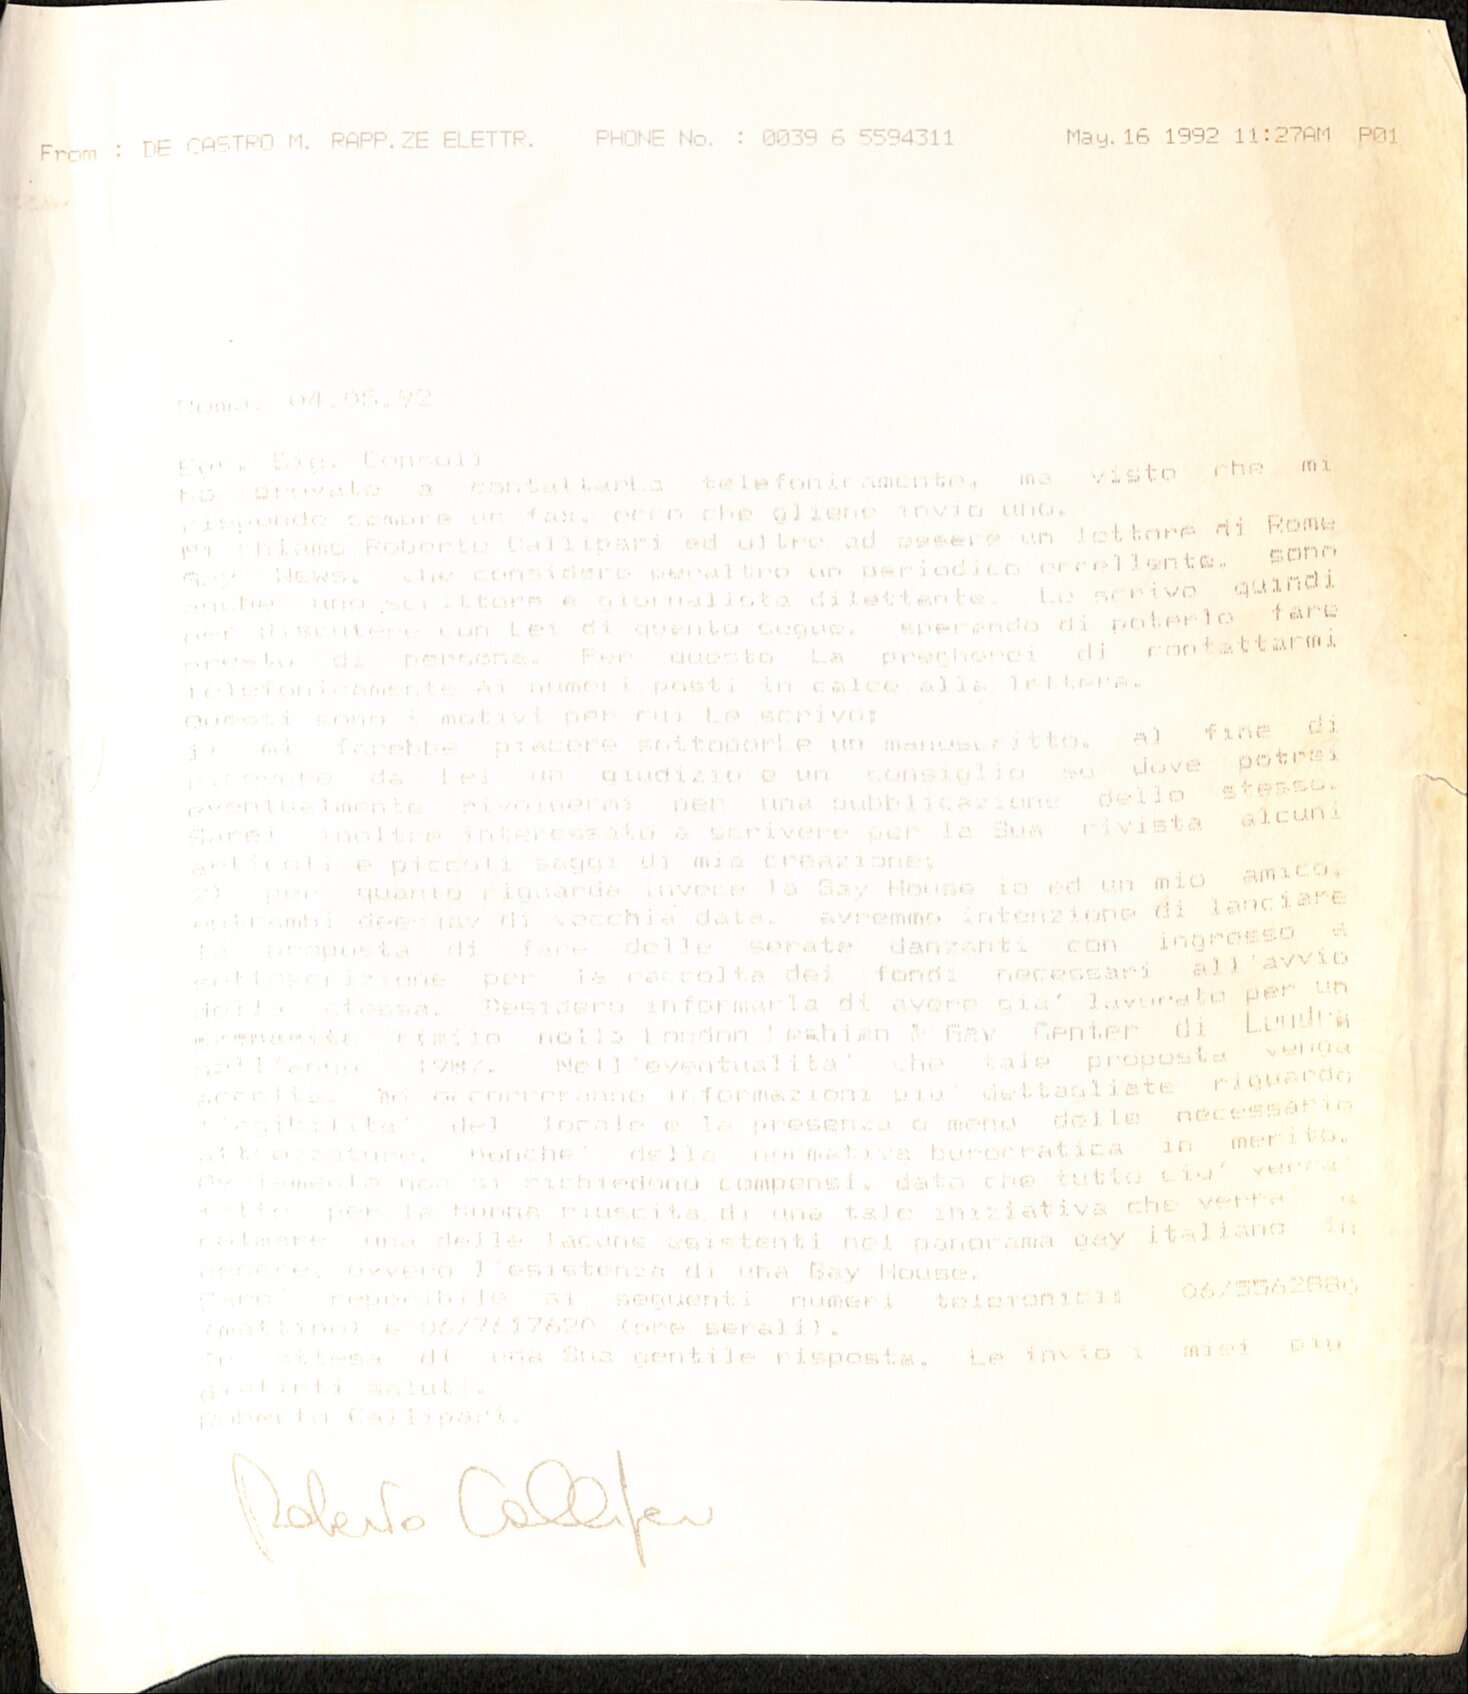 From : DE CASTRO M. RAPP.ZE ELETTR. PHONE No. : 0039 6 5594311 May.16 1992 11:27AM P01
Roma, 04.05.92
Egr. Sig. Consoli
ho provato a contattarLa telefonicamente, ma visto che mi
risponde sempre un fax, ecco che gliene invio uno.
Mi chiamo Roberto Callipari ed oltre ad essere un lettore di Rome
Gay News, che considero peraltro un periodico eccellente, sono
anche uno scrittore e giornalista dilettante. Le scrivo quindi
per discutere con Lei di quanto segue, sperando di poterlo fare
presto di persona. Per questo La pregherei di contattarmi
telefonicamente ai numeri posti in calce alla lettera.
Questi sono i motivi per cui Le scrivo:
1) mi farebbe piacere sottoporLe un manuscritto, al fine di
ricevere da Lei un giudizio e un consiglio su dove potrei
eventualmente rivolgermi per una pubblicazione dello stesso.
Sarei inoltre interessato a scrivere per la Sua rivista alcuni
articoli e piccoli saggi di mia creazione;
2) per quanto riguarda invece la Gay House io ed un mio amico,
entrambi deejay di vecchia data, avremmo intenzione di lanciare
la proposta di fare delle serate danzanti con ingresso a
sottoscrizione per la raccolta dei fondi necessari all'avvio
della stessa. Desidero informarLa di avere gia' lavorato per un
simile nella London Lesbian & Gay Center di Londra
nell'anno 1987. Nell'eventualita' che tale proposta venga
accolta, mi occorreranno informazioni piu' dettagliate riguardo
l'agibilita' del locale e la presenza o meno delle necessarie
attrezzature, nonche' della normativa burocratica in merito.
Ovviamente non si richiedono compensi, dato che tutto cio' verra'
fatto per la buona riuscita di una tale iniziativa che verra' a
colmare una delle lacune esistenti nel panorama gay italiano in
genere, ovvero l'esistenza di una Gay House.
Saro' reperibile ai seguenti numeri telefonici: 06/5562886
(mattino) e 06/7617620 (ore serali).
In attesa di una Sua gentile risposta, Le invio i miei piu'
distinti saluti.
Roberto Callipari.
Roberto Callipari